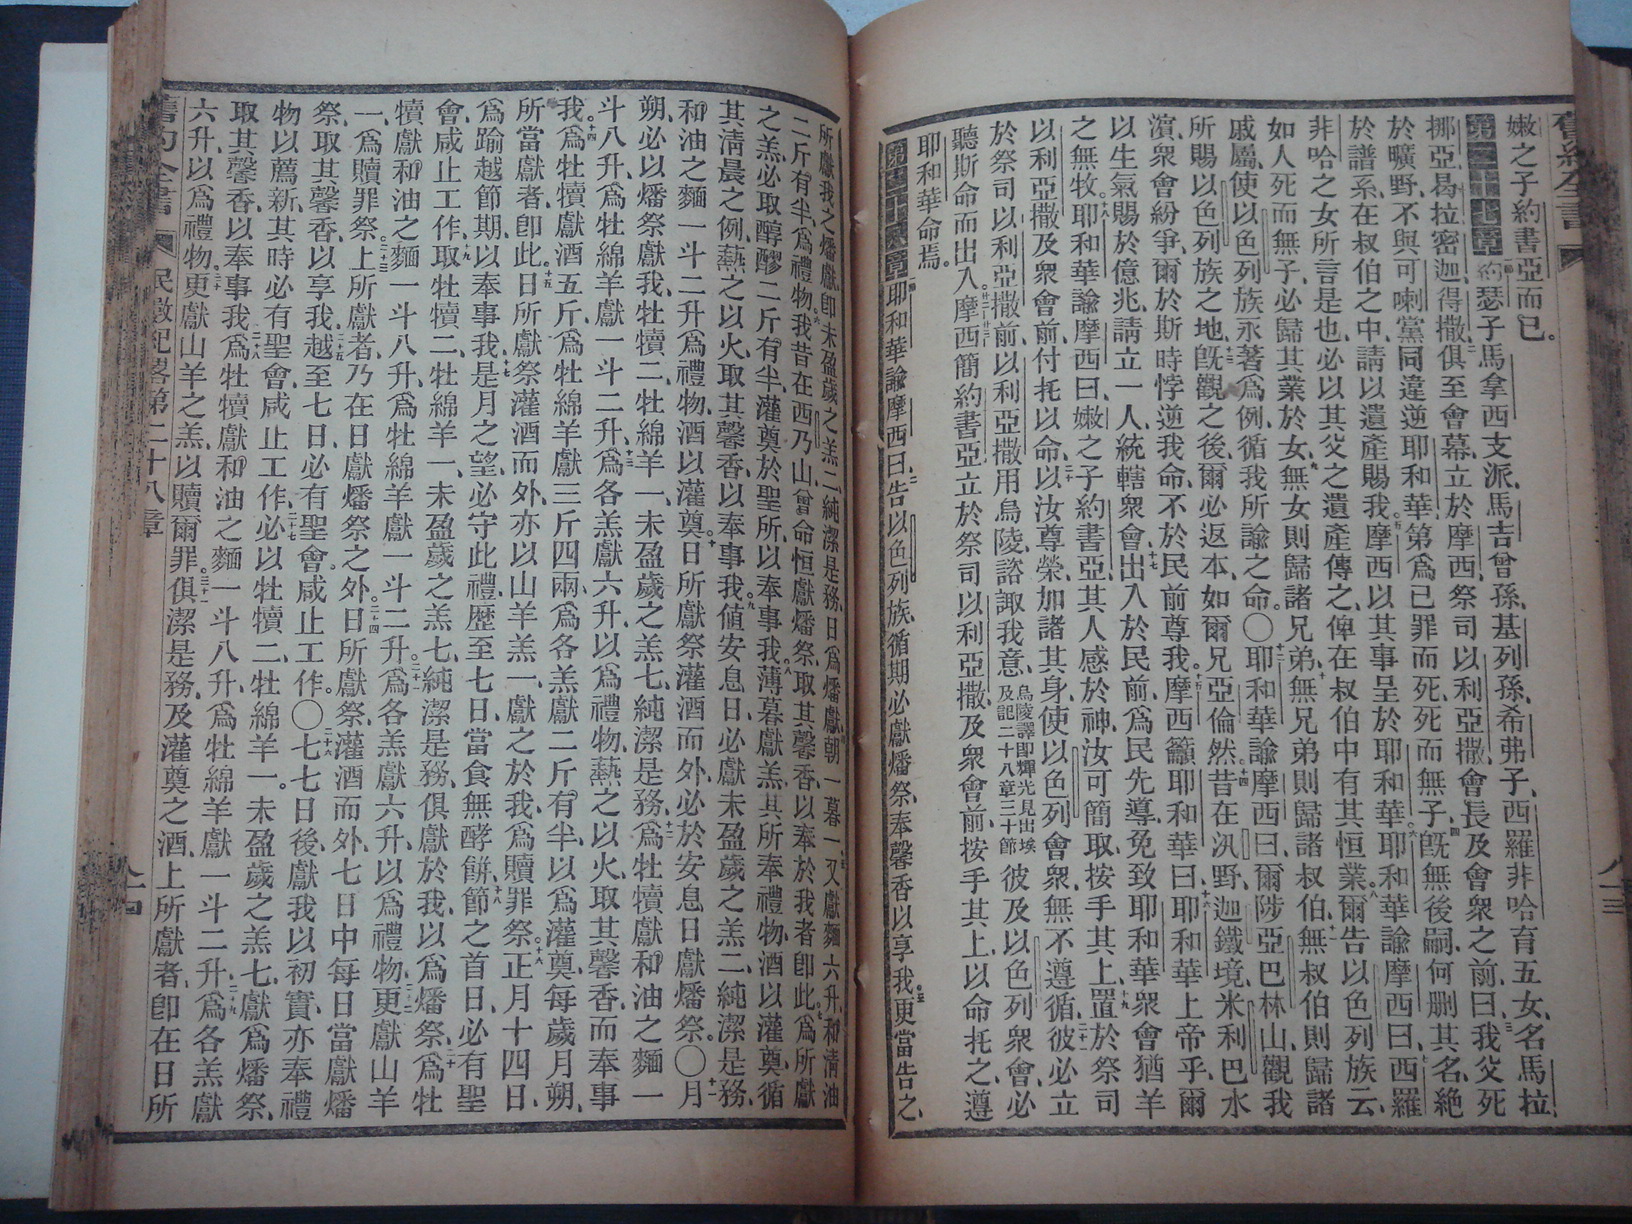 舊約全書
八十三
嫩之子約書亞而已。
第二十七章 約瑟子馬拿西支派馬吉曾孫、基列孫、希弗子、西羅非哈育五女、名馬拉、
挪亞、曷拉、密迦、得撒、俱至會幕、立於摩西、祭司以利亞撒、會長、及會眾之前、曰、我父死
於曠野、不與可喇黨同違逆耶和華、第爲己罪而死、死而無子、既無後嗣、何刪其名、絕
於譜系、在叔伯之中、請以遺產賜我、摩西以其事呈於耶和華、耶和華諭摩西曰、西羅
非哈之女所言是也、必以其父之遺產傳之、俾在叔伯中有其恒業、爾告以色列族云、
如人死而無子、必歸其業於女、無女則歸諸兄弟、無兄弟則歸諸叔伯、無叔伯則歸諸
戚屬、使以色列族永著爲例、循我所諭之命。○耶和華諭摩西曰、爾陟亞巴林山、觀我
所賜以色列族之地、既觀之後、爾必返本、如爾兄亞倫然、昔在汛野、迦鐵境、米利巴水
濱、眾會紛爭、爾於斯時悖逆我命、不於民前尊我、摩西籲耶和華曰、耶和華上帝乎、爾
以生氣賜於億兆、請立一人、統轄眾會、出入於民前、爲民先導、免致耶和華眾會猶羊
之無牧。耶和華諭摩西曰、嫩之子約書亞、其人感於神、汝可簡取、按手其上、置於祭司
以利亞撒及眾會前、付托以命、以汝尊榮加諸其身、使以色列會眾、無不遵循、彼必立
於祭司以利亞撒前、以利亞撒用烏陵諮諏我意、烏陵譯即輝光見出埃及記二十八章三十節 彼及以色列眾會、必
聽斯命而出入。摩西簡約書亞、立於祭司以利亞撒、及眾會前、按手其上、以命托之、遵
耶和華命焉。
第二十八章 耶和華諭摩西曰、告以色列族、循期必獻燔祭、奉馨香以享我、更當告之、
所獻我之燔獻、即未盈歲之羔二、純潔是務、日爲燔獻、朝一暮一、又獻麵六升、和清油
二斤有半、爲禮物。我昔在西乃山、曾命恒獻燔祭、取其馨香、以奉於我者即此。爲所獻
之羔、必取醇醪二斤有半、灌奠於聖所、以奉事我。薄暮獻羔、其所奉禮物、酒以灌奠、循
其淸晨之例、爇之以火、取其馨香、以奉事我。値安息日、必獻未盈歲之羔二、純潔是務、
和油之麵一斗二升、爲禮物、酒以灌奠。日所獻祭灌酒而外、必於安息日獻燔祭。○月
朔、必以燔祭獻我、牡犢二、牡綿羊一、未盈歲之羔七、純潔是務、爲牡犢獻和油之麵一
斗八升、爲牡綿羊獻一斗二升、爲各羔獻六升、以爲禮物、爇之以火、取其馨香、而奉事
我。爲牡犢獻酒五斤、爲牡綿羊獻三斤四兩、爲各羔獻二斤有半、以爲灌奠、每歲月朔、
所當獻者、即此。日所獻祭灌酒而外、亦以山羊羔一、獻之於我、爲贖罪祭。正月十四日、
爲踰越節期、以奉事我。是月之望、必守此禮、歷至七日、當食無酵餅、節之首日、必有聖
會、咸止工作、取牡犢二、牡綿羊一、未盈歲之羔七、純潔是務、俱獻於我、以爲燔祭、爲牡
犢獻和油之麵一斗八升、爲牡綿羊獻一斗二升。爲各羔獻六升、以爲禮物、更獻山羊
一、爲贖罪祭。上所獻者、乃在日獻燔祭之外。日所獻祭灌酒而外、七日中每日當獻燔
祭、取其馨香、以享我、越至七日、必有聖會。咸止工作。○七七日後、獻我以初實、亦奉禮
物以薦新、其時必有聖會、咸止工作、必以牡犢二、牡綿羊一。未盈歲之羔七、獻爲燔祭、
取其馨香、以奉事我、爲牡犢獻和油之麵一斗八升、爲牡綿羊獻一斗二升、爲各羔獻
六升、以爲禮物。更獻山羊之羔、以贖爾罪。俱潔是務、及灌奠之酒、上所獻者、即在日所
舊約全書
民數紀畧第二十八章
八十四